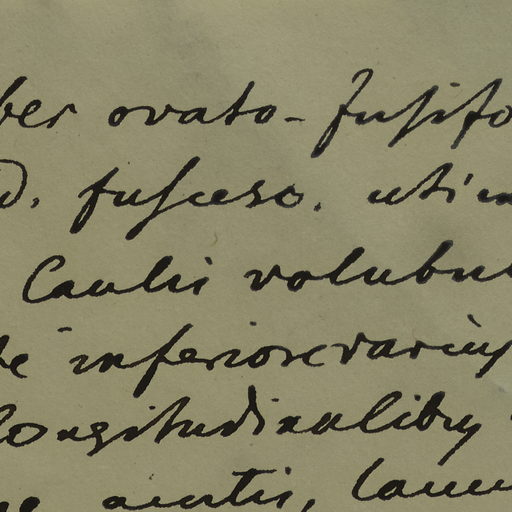 ber ovato-fusifo
d. fusceso. utin
Caulis volubul
te inferiore rariuſ
longitudinalibuſ
acutis, lann